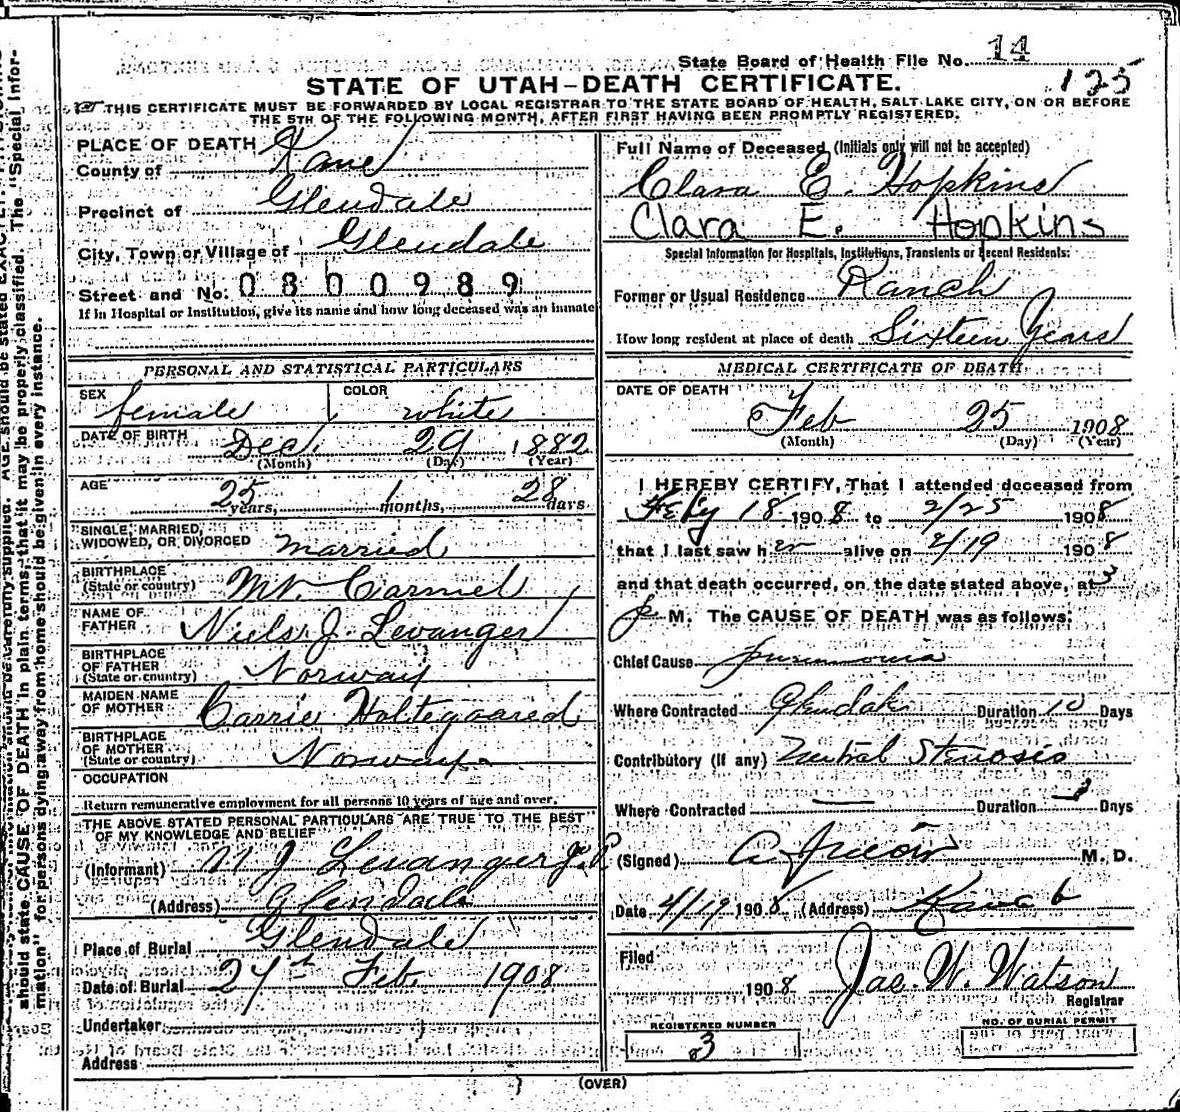 State Board of Health File No. 14
125
STATE OF UTAH-DEATH CERTIFICATE.
THIS CERTIFICATE MUST BE FORWARDED BY LOCAL REGISTRAR TO THE STATE BOARD OF HEALTH, SALT LAKE CITY, ON OR BEFORE
THE 5TH OF THE FOLLOWING MONTH, AFTER FIRST HAVING BEEN PROMPTLY REGISTERED.
PLACE OF DEATH
County of Kane
Precinct of Glendale
City, Town or Village of Glendale
Street and No. 0800989
If in Hospital or Institution, give its name and how long deceased was an inmate
PERSONAL AND STATISTICAL PARTICULARS
SEX female COLOR white
DATE OF BIRTH Dec. 29 1882
(Month) (Day) (Year)
AGE 25 years, 1 months, 28 days
SINGLE, MARRIED,
WIDOWED, OR DIVORCED married
BIRTHPLACE
(State or country) Mt. Carmel
NAME OF
FATHER Niels J. Levanger
BIRTHPLACE
OF FATHER
(State or country) Norway
MAIDEN NAME
OF MOTHER Carrie Holtegaared
BIRTHPLACE
OF MOTHER
(State or country) Norway
OCCUPATION
Return remunerative employment for all persons 10 years of age and over.
THE ABOVE STATED PERSONAL PARTICULARS ARE TRUE TO THE BEST
OF MY KNOWLEDGE AND BELIEF
(Informant) N J Levanger
(Address) Glendale
Place of Burial Glendale
Date of Burial 27th Feb. 1908
Undertaker
Address
Full Name of Deceased (Initials only will not be accepted)
Clara E. Hopkins
Clara E. Hopkins
Special Information for Hospitals, Institutions, Transients or Recent Residents:
Former or Usual Residence Ranch
How long resident at place of death Sixteen Years
MEDICAL CERTIFICATE OF DEATH
DATE OF DEATH
Feb 25 1908
(Month) (Day) (Year)
I HEREBY CERTIFY, That I attended deceased from
Feby 18 1908 to 2/25 1908
that I last saw her alive on 2/19 1908
and that death occurred, on the date stated above, at 3
p M. The CAUSE OF DEATH was as follows:
Chief Cause pneumonia
Where Contracted Glendale Duration 10 Days
Contributory (if any) Mitral Stenosis
Where Contracted Duration Days
(Signed) M. D.
Date 4/19 1908 (Address) Kanab
Filed
1908 Jac. W. Watson
Registrar
REGISTERED NUMBER
3
NO. OF BURIAL PERMIT
(OVER)
should state CAUSE OF DEATH in plain terms, that it may be properly classified. The "Special Infor-
mation" for persons dying away from home should be given in every instance.